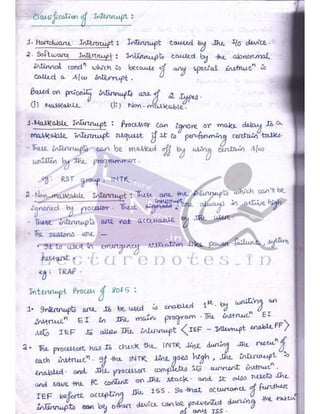 Classification of Interrupt :
1. Hardware Interrupt : Interrupt caused by the I/o device.
2. Software Interrupt : Interrupts caused by the abnormal
internal condⁿ which is because of any special instrucⁿ is
called a S/w interrupt.
Based on priority interrupts are of 2 types.
(i) Maskable (ii) Non-maskable.
1. Maskable Interrupt : Processor can ignore or make delay to a
maskable interrupt request if it is performing certain tasks.
- These interrupts can be masked off by using certain S/w
written by the programmer.
eg: RST group, INTR.
2. Non-maskable Interrupt : These are the interrupts which can't be
ignored by processor. These interrupt are always in active high.
- These interrupts are not accessable by the user.
- The reasons are —
- It is used in emergency situation like power failure, system
restart.
eg: TRAP.
lecturenotes.in
Interrupt Process of 8085 :
1. Interrupts are to be used is enabled 1st by writing an
instrucⁿ EI in the main program. The instrucⁿ EI
sets IEF to allow the interrupt <IEF - Interrupt enable FF>
2. The processor has to check the INTR line during the execuⁿ of
each instrucⁿ. If the INTR line goes high, the interrupt is
enabled and the processor completes its current instrucⁿ.
and save the PC content on the stack and it also resets the
IEF before accepting the ISS. So that occurance of further
interrupts can by other device can be prevented during the execuⁿ
of any ISS.